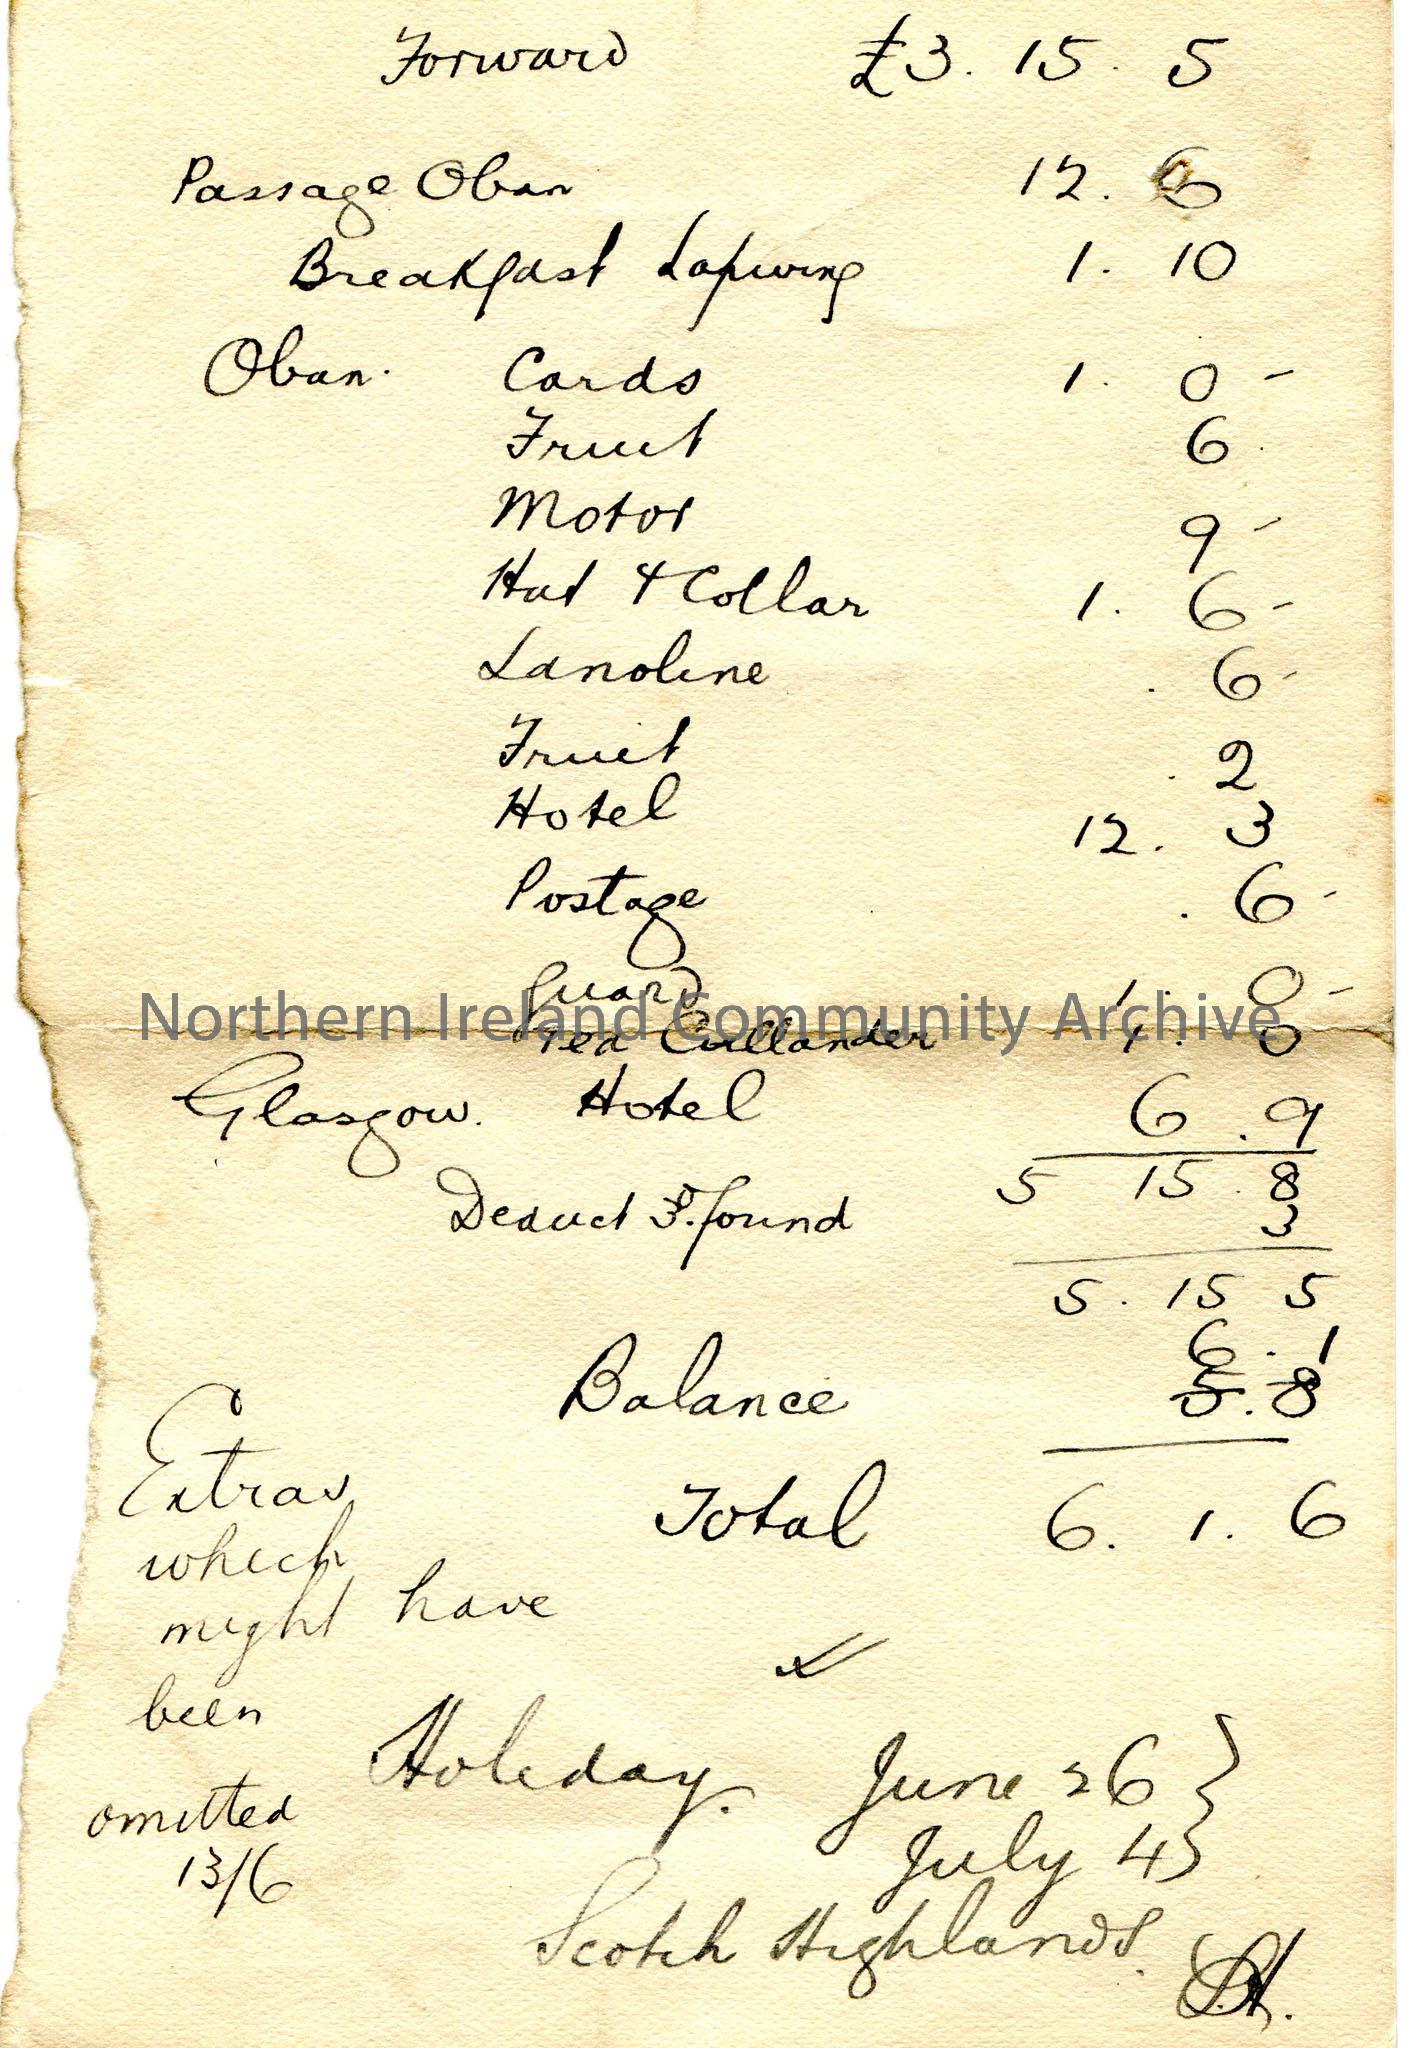 Forward £3. 15. 5
Passage Oban 12. 6
Breakfast Lapwing 1. 10
Oban. Cards 1. 0 -
Fruit 6
Motor 9 -
Hat & Collar 1. 6 -
Lanoline . 6 -
Fruit . 2
Hotel 12. 3
Postage . 6 -
Guard 1. 0 -
Northern Ireland Community Archive
Tea Callander 1. 0
Glasgow. Hotel 6. 9
5 15. 8
Deduct 3d. found 3
5. 15 5
6. 1
Balance 5. 8
Total 6. 1. 6
Extras
which
might have
been
omitted
13/6
Holiday. June 26 }
July 4 }
Scotch Highlands.